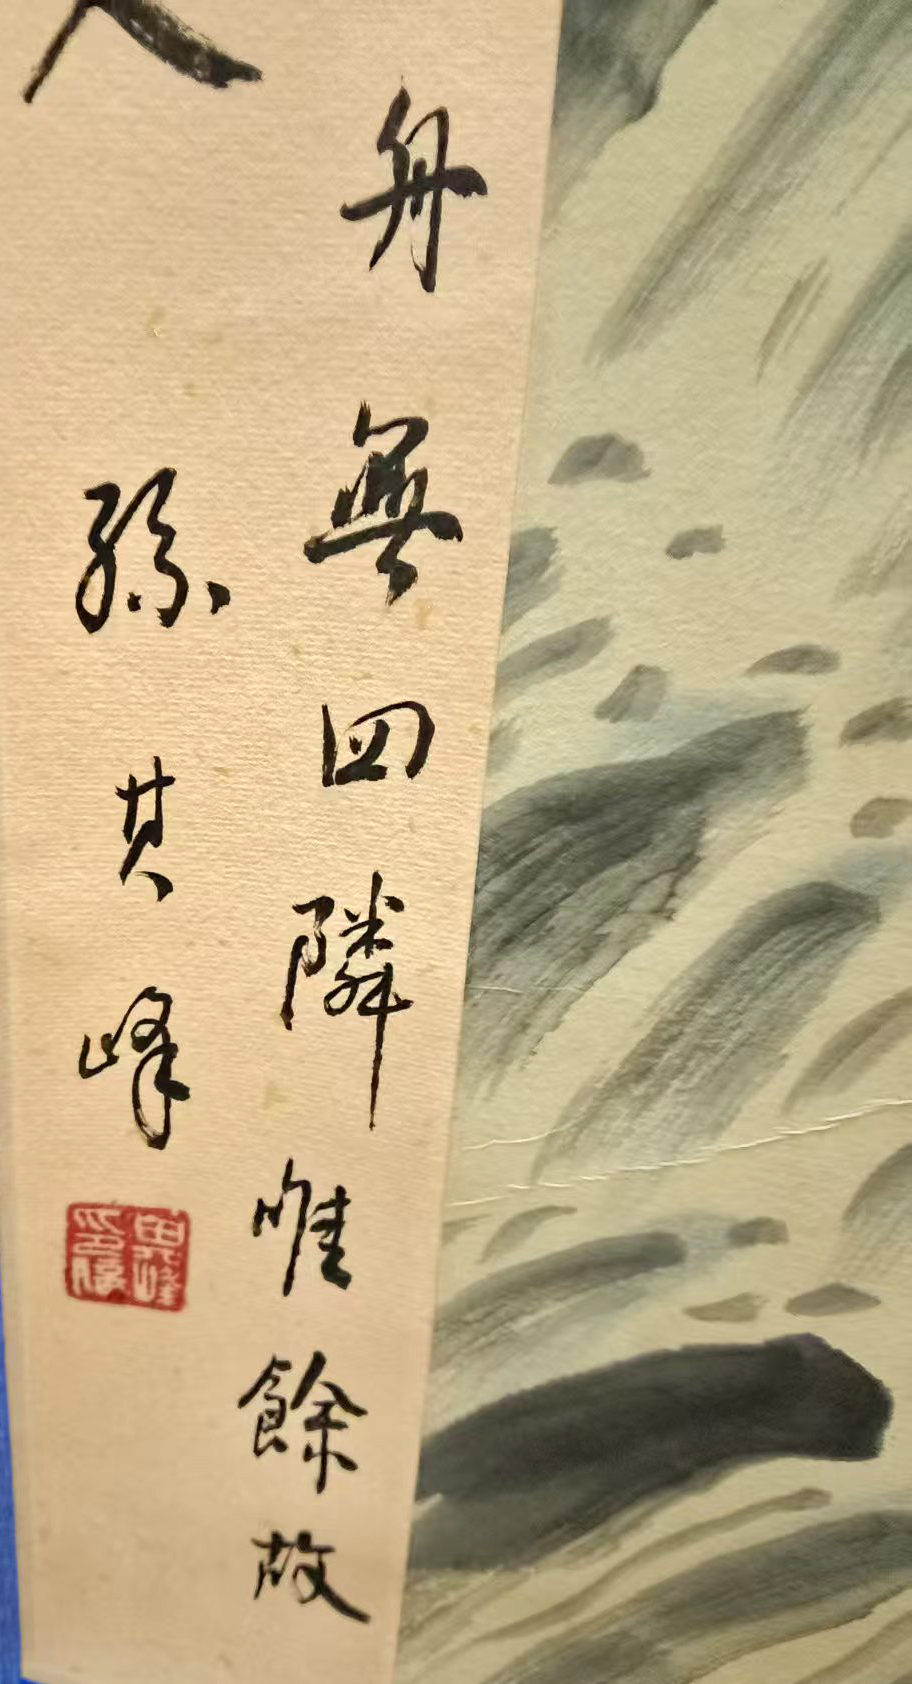 舟無四隣惟餘故
人
孫其峰